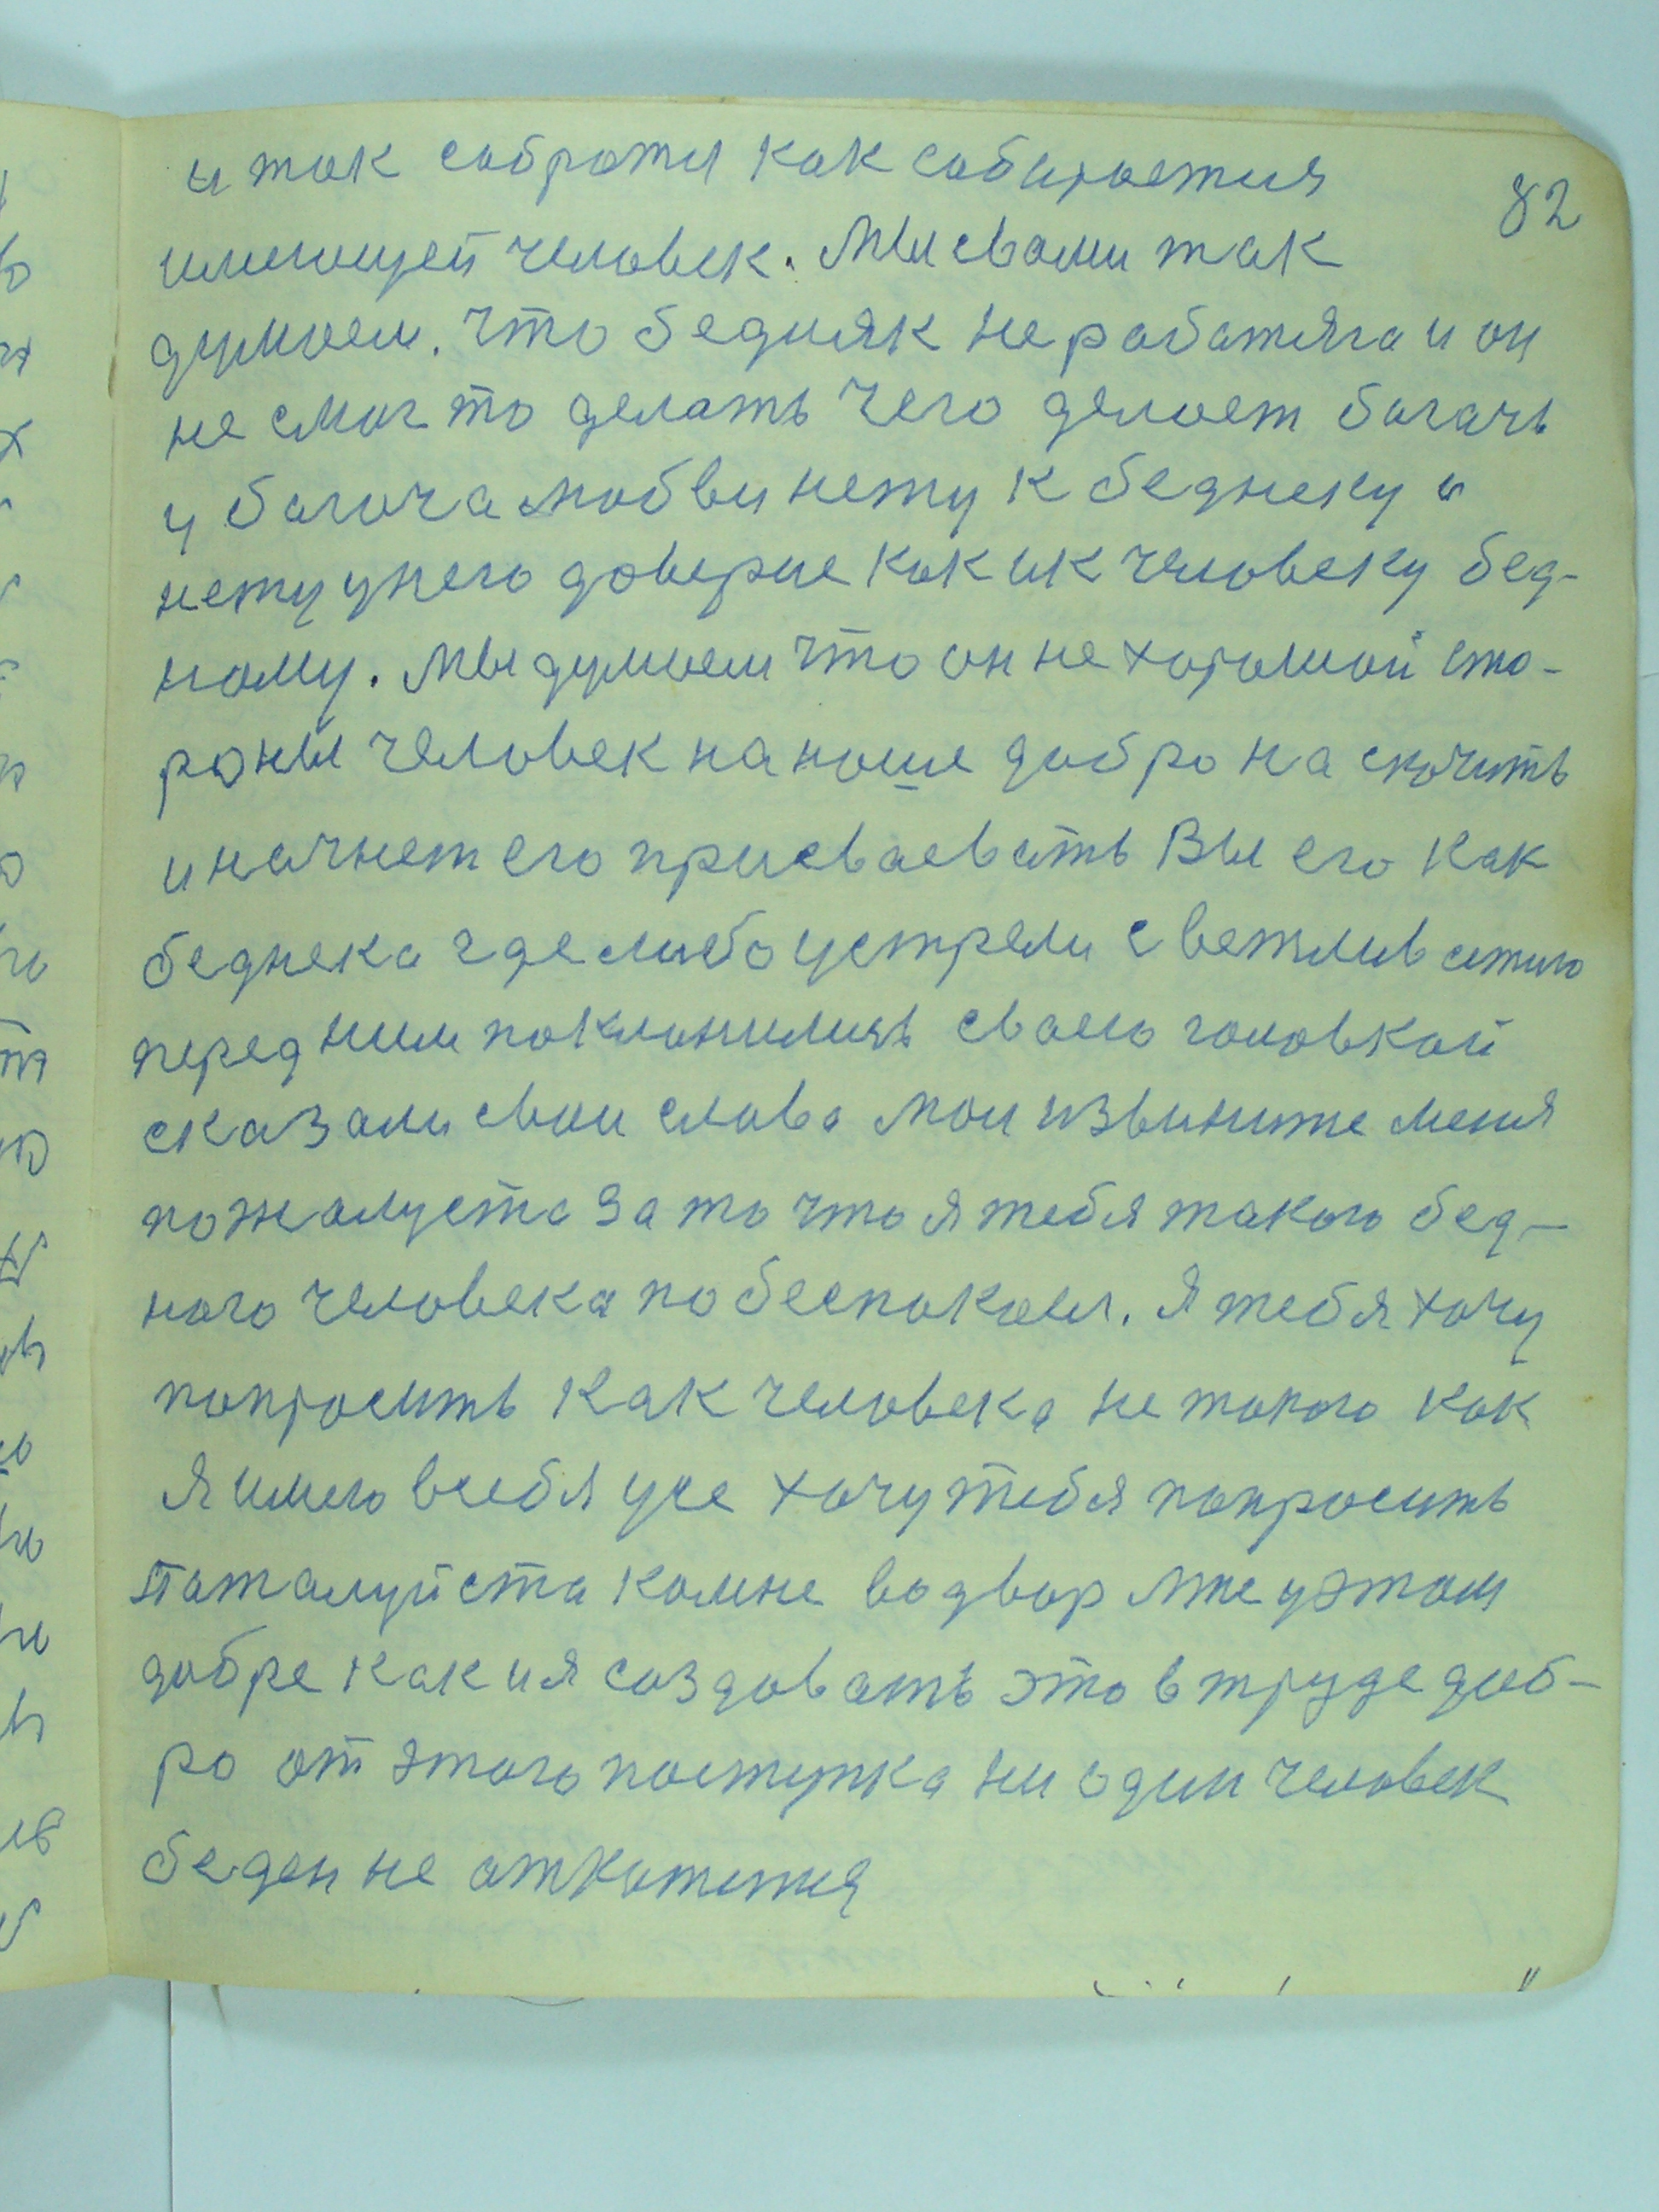 82
и так собратся как собирается
имеющей человек. Мы свами так
думаем. что бедняк не работяга и он
не смог то делать чего делает богачь
у богача любви нету к беднеку и
нету унего доверие как ик человеку бед-
ному. Мы думаем что он не хорошой сто-
роны человек на наше добро на скочить
и начнет его присваевать Вы его как
беднека где либо устрели с вежливостию
перед ним поклонились своею головкой
сказали свои слова мои извините меня
пожалуста За то что я тебя такого бед-
ного человека побеспокоел. Я тебя хочу
попросить как человека не такого как
Я имею всебя усе хочу тебя попросить
Пажалуйста комне во двор уэтом
добре как и я создовать это в труде доб-
ро от этого поступка ни один человек
беден не откажится